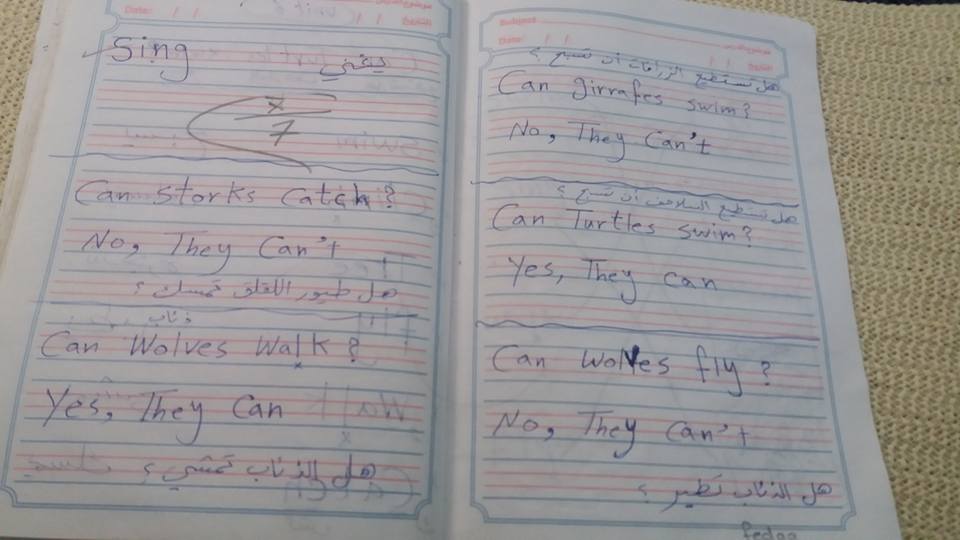 Date: / /
Sing يغني
7
7
Can storks catch?
No, They Can't
هل طيور اللقلق تمسك ؟
ذئاب
Can Wolves Walk ?
Yes, They Can
هل الذئاب تمشي ؟
Subject
Date: / /
هل تستطيع الزرافات أن تسبح ؟
Can girrafes swim?
No, They Can't
هل تستطيع السلاحف أن تسبح ؟
Can Turtles swim?
Yes, They can
Can wolves fly ?
No, They Can't
هل الذئاب تطير ؟